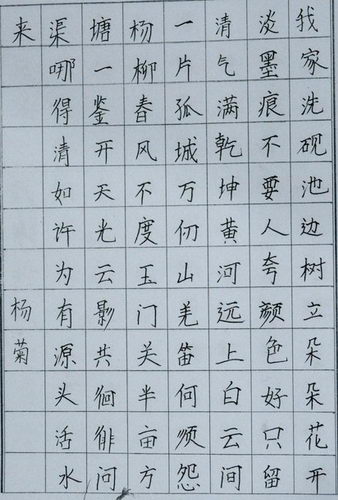 我家洗砚池边树立朵朵花开
淡墨痕不要人夸颜色好只留
清气满乾坤黄河远上白云间
一片孤城万仞山羌笛何须怨
杨柳春风不度玉门关半亩方
塘一鉴开天光云影共徊徘问
渠哪得清如许为有源头活水
来 杨菊